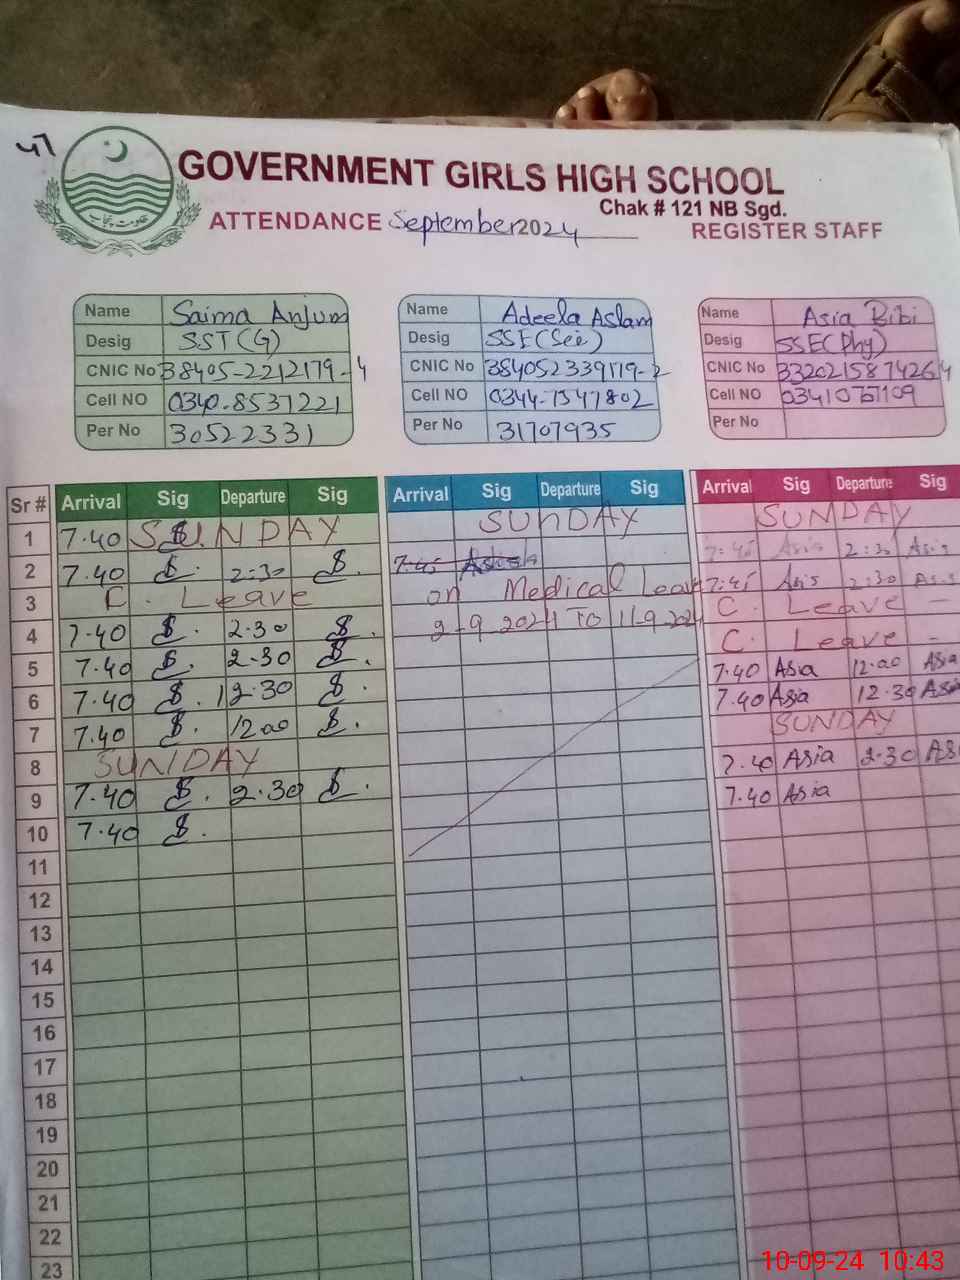 47
GOVERNMENT GIRLS HIGH SCHOOL
Chak # 121 NB Sgd.
ATTENDANCE September 2024 REGISTER STAFF
حکومت پنجاب
Name Saima Anjum
Desig SST(G)
CNIC No 38405-2212179-4
Cell NO 0340-8531221
Per No 30522331
Name Adeela Aslam
Desig SSE(Sci)
CNIC No
Cell NO 0344-7547802
Per No 31707935
Name Asia Bibi
Desig SSE(Phy)
CNIC No
Cell NO
Per No
Sr # Arrival Sig Departure Sig Arrival Sig Departure Sig Arrival Sig Departure Sig
1 7.40 SUNDAY SUNDAY SUNDAY
2 7.40 2:30 7:45 7:45 Asia 2:30 Asia
3 C. Leave on Medical Leave 7:45 Asia 2:30 Asia
4 7.40 2.30 2-9-2024 TO 11-9-2024 C. Leave -
5 7.40 2.30 C. Leave -
6 7.40 12.30 7.40 Asia 12.00 Asia
7 7.40 12.00 7.40 Asia 12.30 Asia
8 SUNDAY SUNDAY
9 7.40 2.30 7.40 Asia 2.30 Asia
10 7.40 7.40 Asia
11
12
13
14
15
16
17
18
19
20
21
22
23
10-09-24 10:43